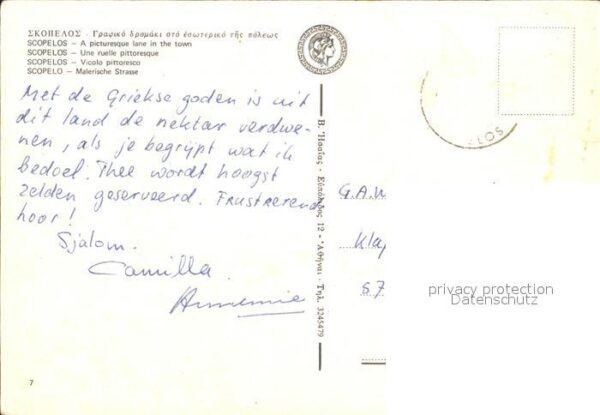 ΣΚΟΠΕΛΟΣ - Γραφικό δρομάκι στό ἐσωτερικό τῆς πόλεως
SCOPELOS — A picturesque lane in the town
SCOPELOS — Une ruelle pittoresque
SCOPELOS — Vicolo pittoresco
SCOPELO — Malerische Strasse
Met de Griekse goden is uit
dit land de nektar verdwe-
nen, als je begrijpt wat ik
bedoel. Thee wordt hoogst
zelden geserveerd. Frustrerend
hoor!
Sjalom.
Camilla
Annemie
7
Β. Ἡσαΐας - Εὐπόλιδος 12 - Ἀθῆναι - Τηλ. 3245479
ΛΟΣ
G.A.W
Klap
57
privacy protection
Datenschutz